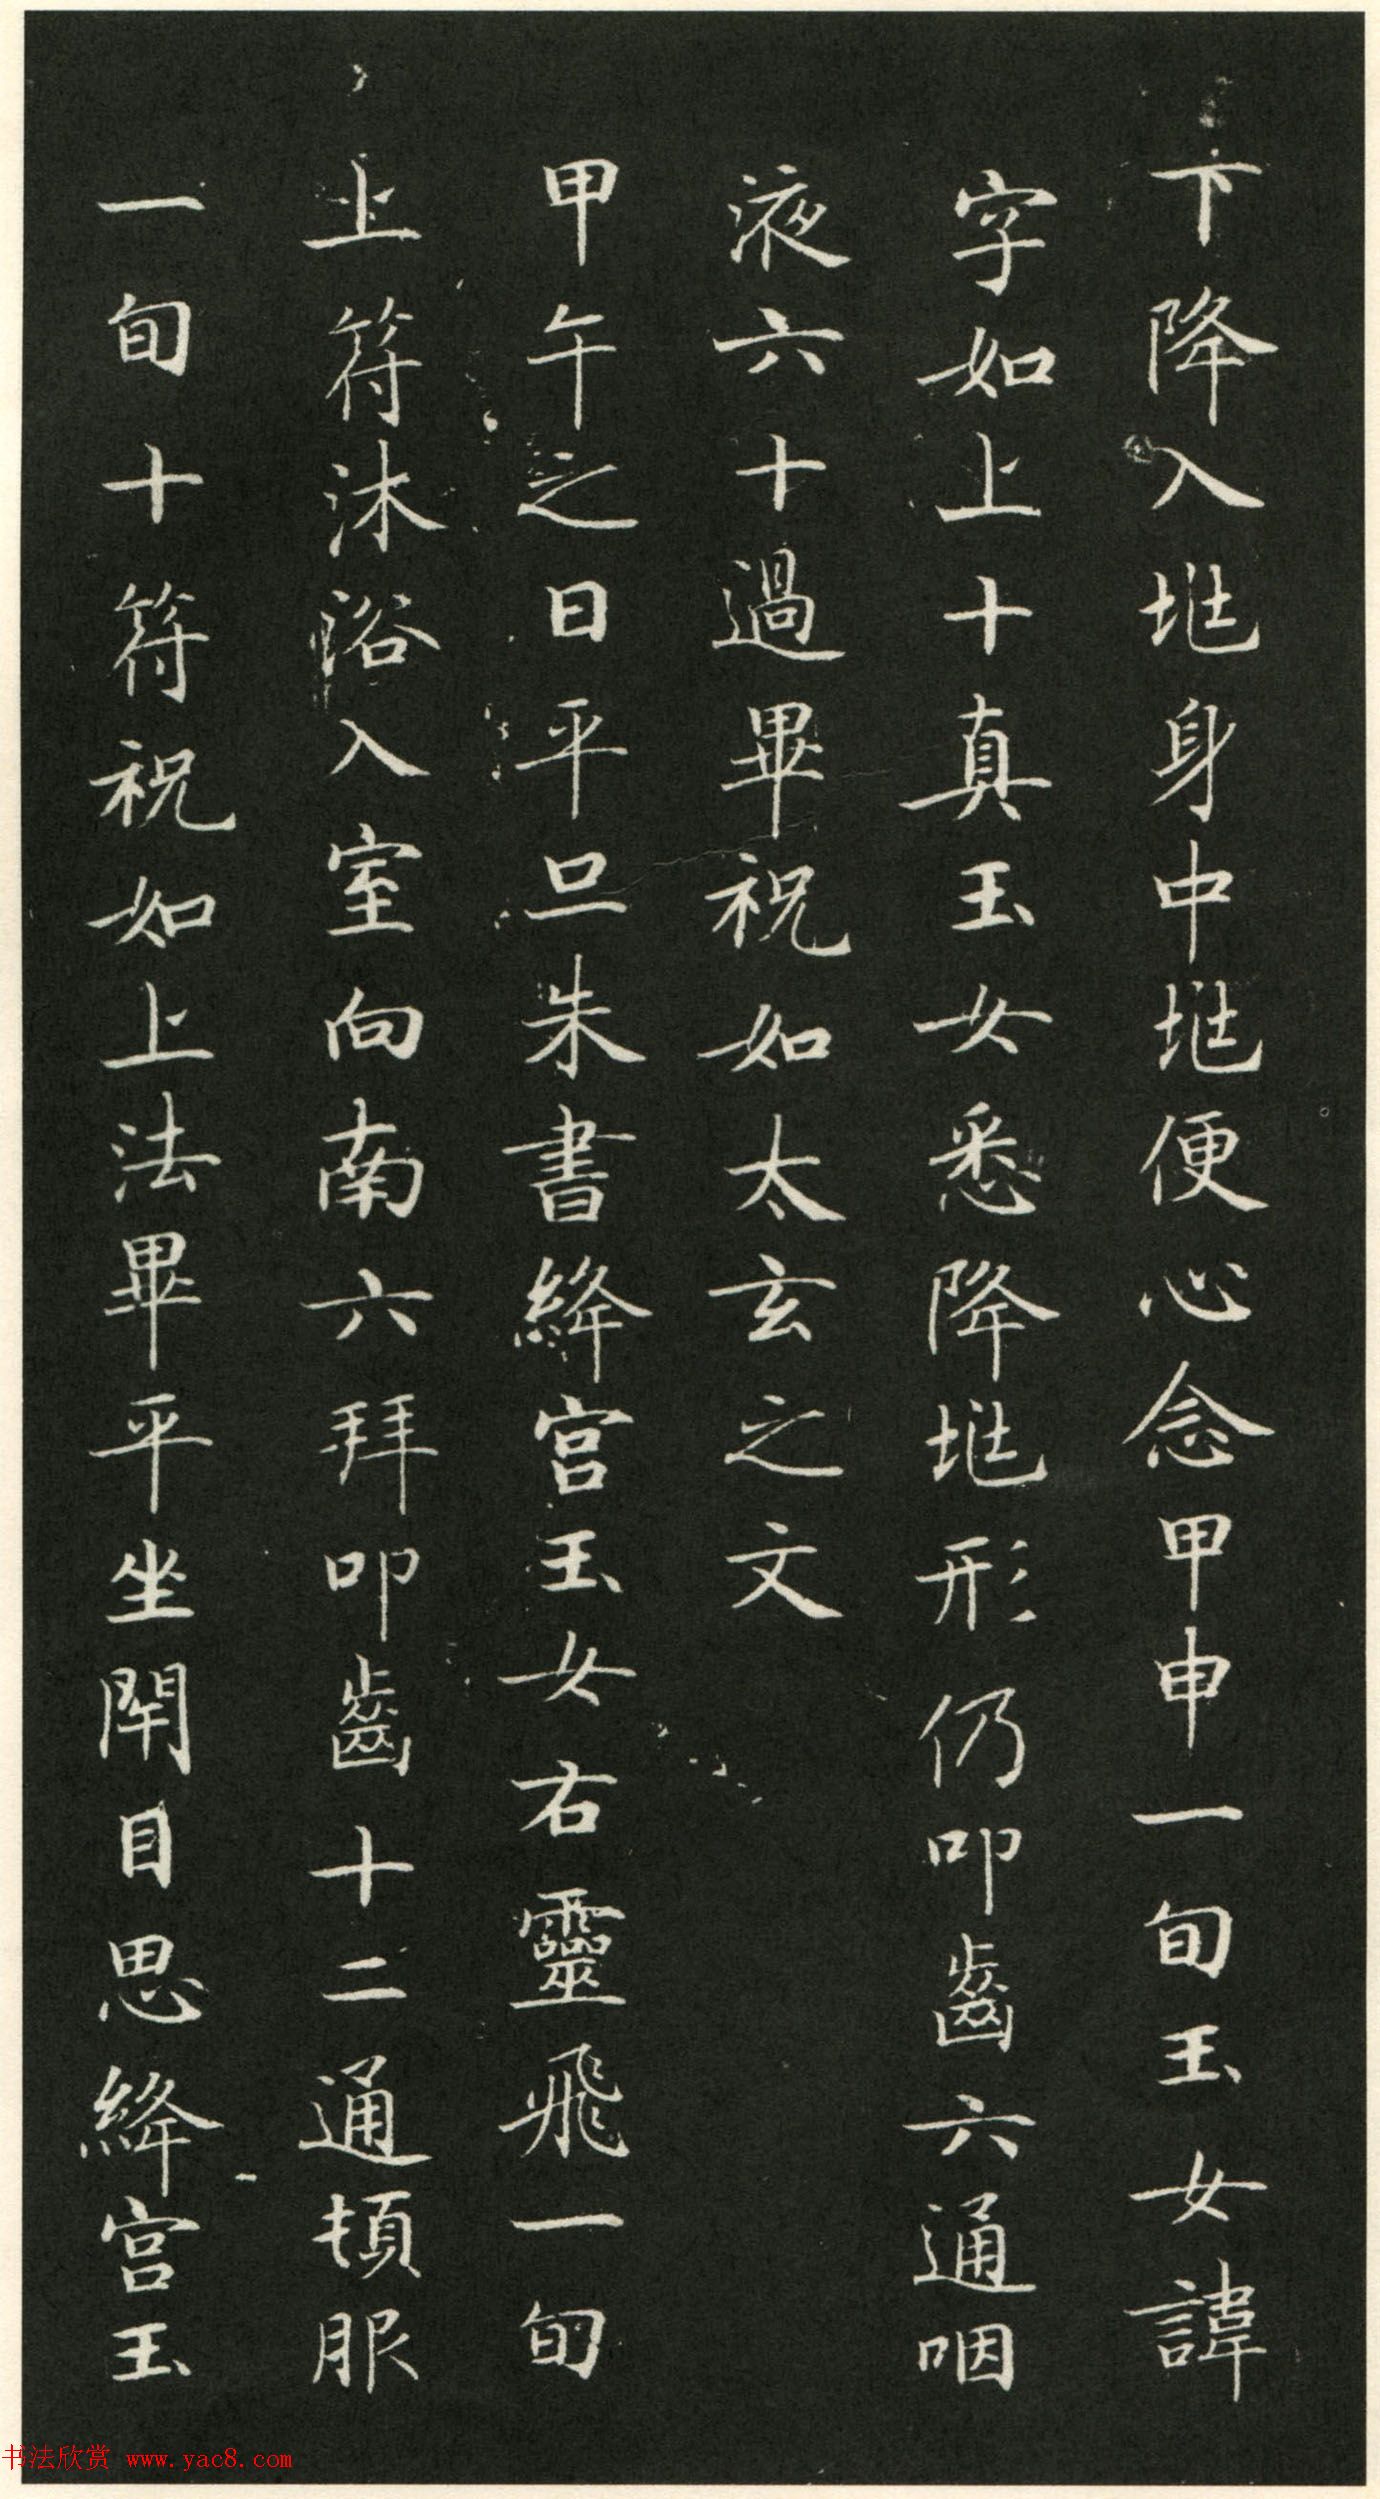 下降入地身中地便心念甲申一旬玉女諱
字如上十真玉女悉降地形仍叩齒六通咽
液六十過畢祝如太玄之文
甲午之日平旦朱書絳宮玉女右靈飛一旬
上符沐浴入室向南六拜叩齒十二通頓服
一旬十符祝如上法畢平坐閇目思絳宮玉
书法欣赏 www.yac8.com